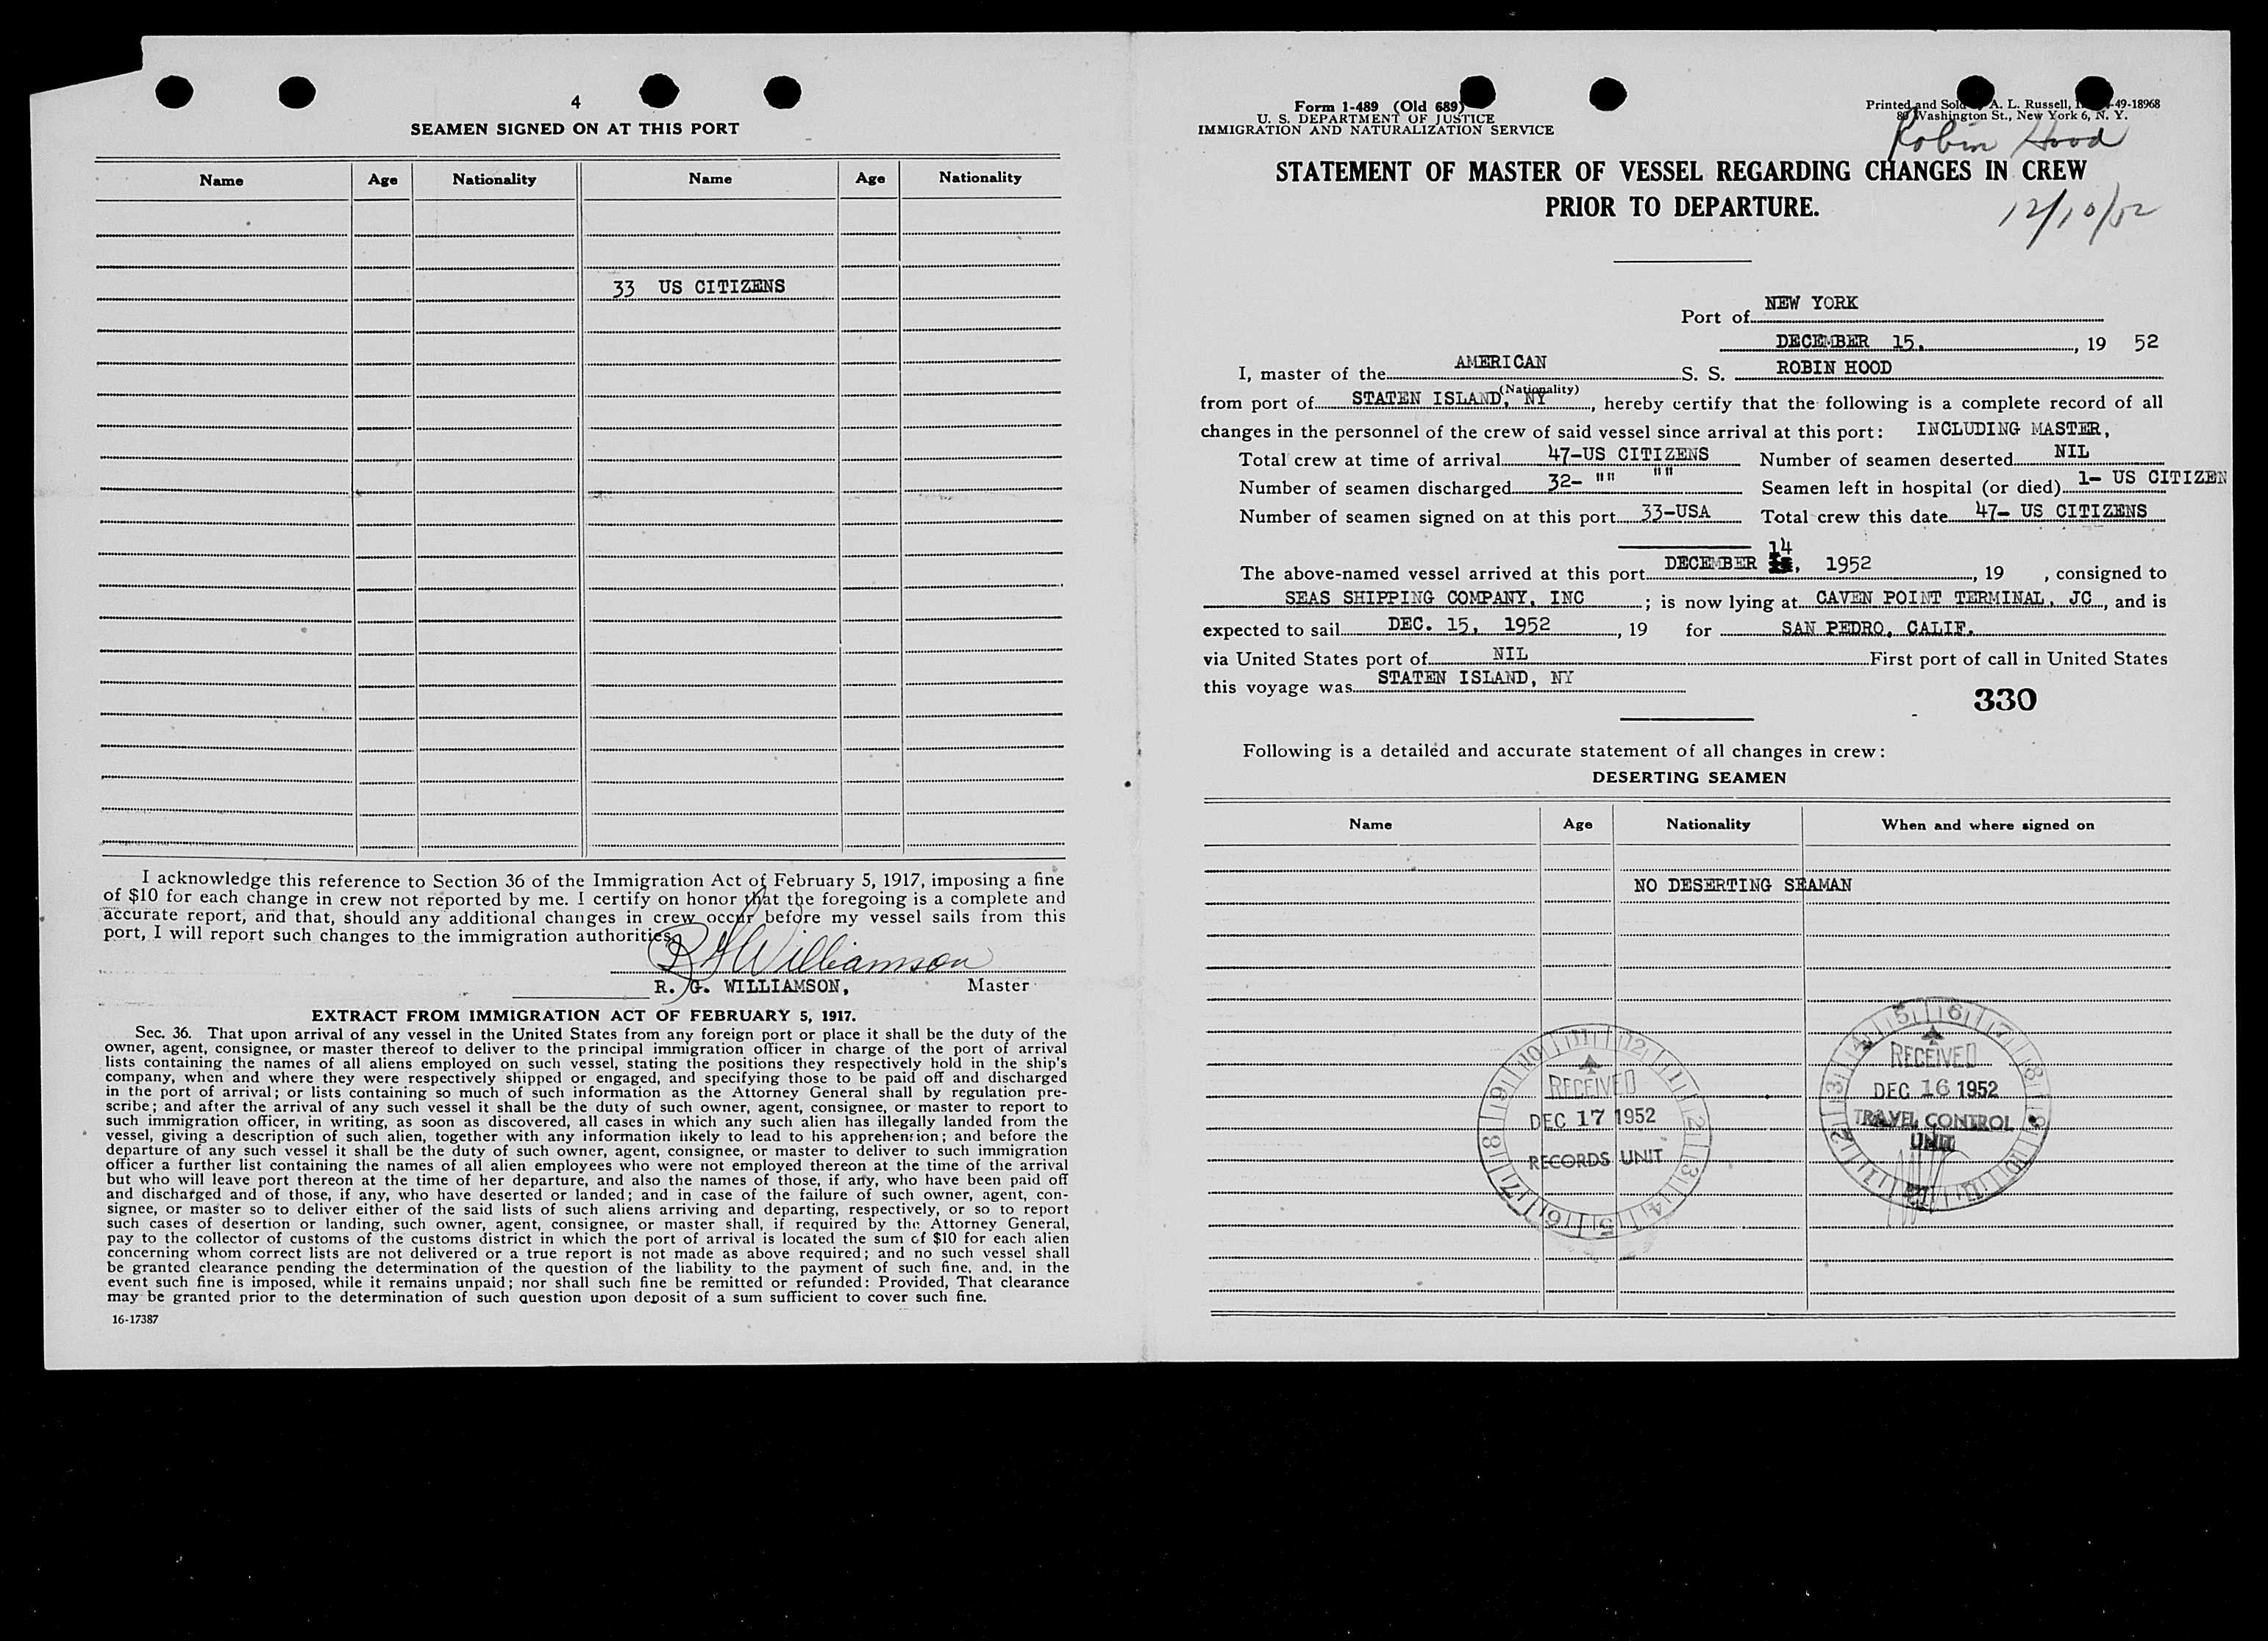 4
SEAMEN SIGNED ON AT THIS PORT
Name Age Nationality Name Age Nationality
33 US CITIZENS
I acknowledge this reference to Section 36 of the Immigration Act of February 5, 1917, imposing a fine
of $10 for each change in crew not reported by me. I certify on honor that the foregoing is a complete and
accurate report, and that, should any additional changes in crew occur before my vessel sails from this
port, I will report such changes to the immigration authorities.
R G Williamson
R. G. WILLIAMSON, Master
EXTRACT FROM IMMIGRATION ACT OF FEBRUARY 5, 1917.
Sec. 36. That upon arrival of any vessel in the United States from any foreign port or place it shall be the duty of the
owner, agent, consignee, or master thereof to deliver to the principal immigration officer in charge of the port of arrival
lists containing the names of all aliens employed on such vessel, stating the positions they respectively hold in the ship's
company, when and where they were respectively shipped or engaged, and specifying those to be paid off and discharged
in the port of arrival; or lists containing so much of such information as the Attorney General shall by regulation pre-
scribe; and after the arrival of any such vessel it shall be the duty of such owner, agent, consignee, or master to report to
such immigration officer, in writing, as soon as discovered, all cases in which any such alien has illegally landed from the
vessel, giving a description of such alien, together with any information likely to lead to his apprehension; and before the
departure of any such vessel it shall be the duty of such owner, agent, consignee, or master to deliver to such immigration
officer a further list containing the names of all alien employees who were not employed thereon at the time of the arrival
but who will leave port thereon at the time of her departure, and also the names of those, if any, who have been paid off
and discharged and of those, if any, who have deserted or landed; and in case of the failure of such owner, agent, con-
signee, or master so to deliver either of the said lists of such aliens arriving and departing, respectively, or so to report
such cases of desertion or landing, such owner, agent, consignee, or master shall, if required by the Attorney General,
pay to the collector of customs of the customs district in which the port of arrival is located the sum of $10 for each alien
concerning whom correct lists are not delivered or a true report is not made as above required; and no such vessel shall
be granted clearance pending the determination of the question of the liability to the payment of such fine, and, in the
event such fine is imposed, while it remains unpaid; nor shall such fine be remitted or refunded: Provided, That clearance
may be granted prior to the determination of such question upon deposit of a sum sufficient to cover such fine.
16-17387
Form 1-489 (Old 689)
U. S. DEPARTMENT OF JUSTICE
IMMIGRATION AND NATURALIZATION SERVICE
Printed and Sold A. L. Russell, 49-18968
Washington St., New York 6, N. Y.
Robin Hood
STATEMENT OF MASTER OF VESSEL REGARDING CHANGES IN CREW
PRIOR TO DEPARTURE.
12/10/52
Port of NEW YORK
DECEMBER 15, , 19 52
I, master of the AMERICAN S. S. ROBIN HOOD
(Nationality)
from port of STATEN ISLAND, NY , hereby certify that the following is a complete record of all
changes in the personnel of the crew of said vessel since arrival at this port: INCLUDING MASTER,
Total crew at time of arrival 47-US CITIZENS Number of seamen deserted NIL
Number of seamen discharged 32- "" "" Seamen left in hospital (or died) 1- US CITIZEN
Number of seamen signed on at this port 33-USA Total crew this date 47- US CITIZENS
14
The above-named vessel arrived at this port DECEMBER , 1952 , 19 , consigned to
SEAS SHIPPING COMPANY, INC ; is now lying at CAVEN POINT TERMINAL, JC , and is
expected to sail DEC. 15, 1952 , 19 for SAN PEDRO, CALIF.
via United States port of NIL First port of call in United States
this voyage was STATEN ISLAND, NY
330
Following is a detailed and accurate statement of all changes in crew:
DESERTING SEAMEN
Name Age Nationality When and where signed on
NO DESERTING SEAMAN
RECEIVED
DEC 17 1952
RECORDS UNIT
10 11 12 1 2 3 4 5 6 7 8 9
RECEIVED
DEC 16 1952
TRAVEL CONTROL
UNIT
5 6 7 8 9 10 11 12 1 2 3 4